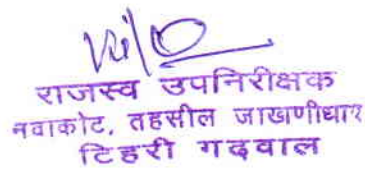 राजस्व उपनिरीक्षक
नवाकोट, तहसील जाखणीधार
टिहरी गढवाल